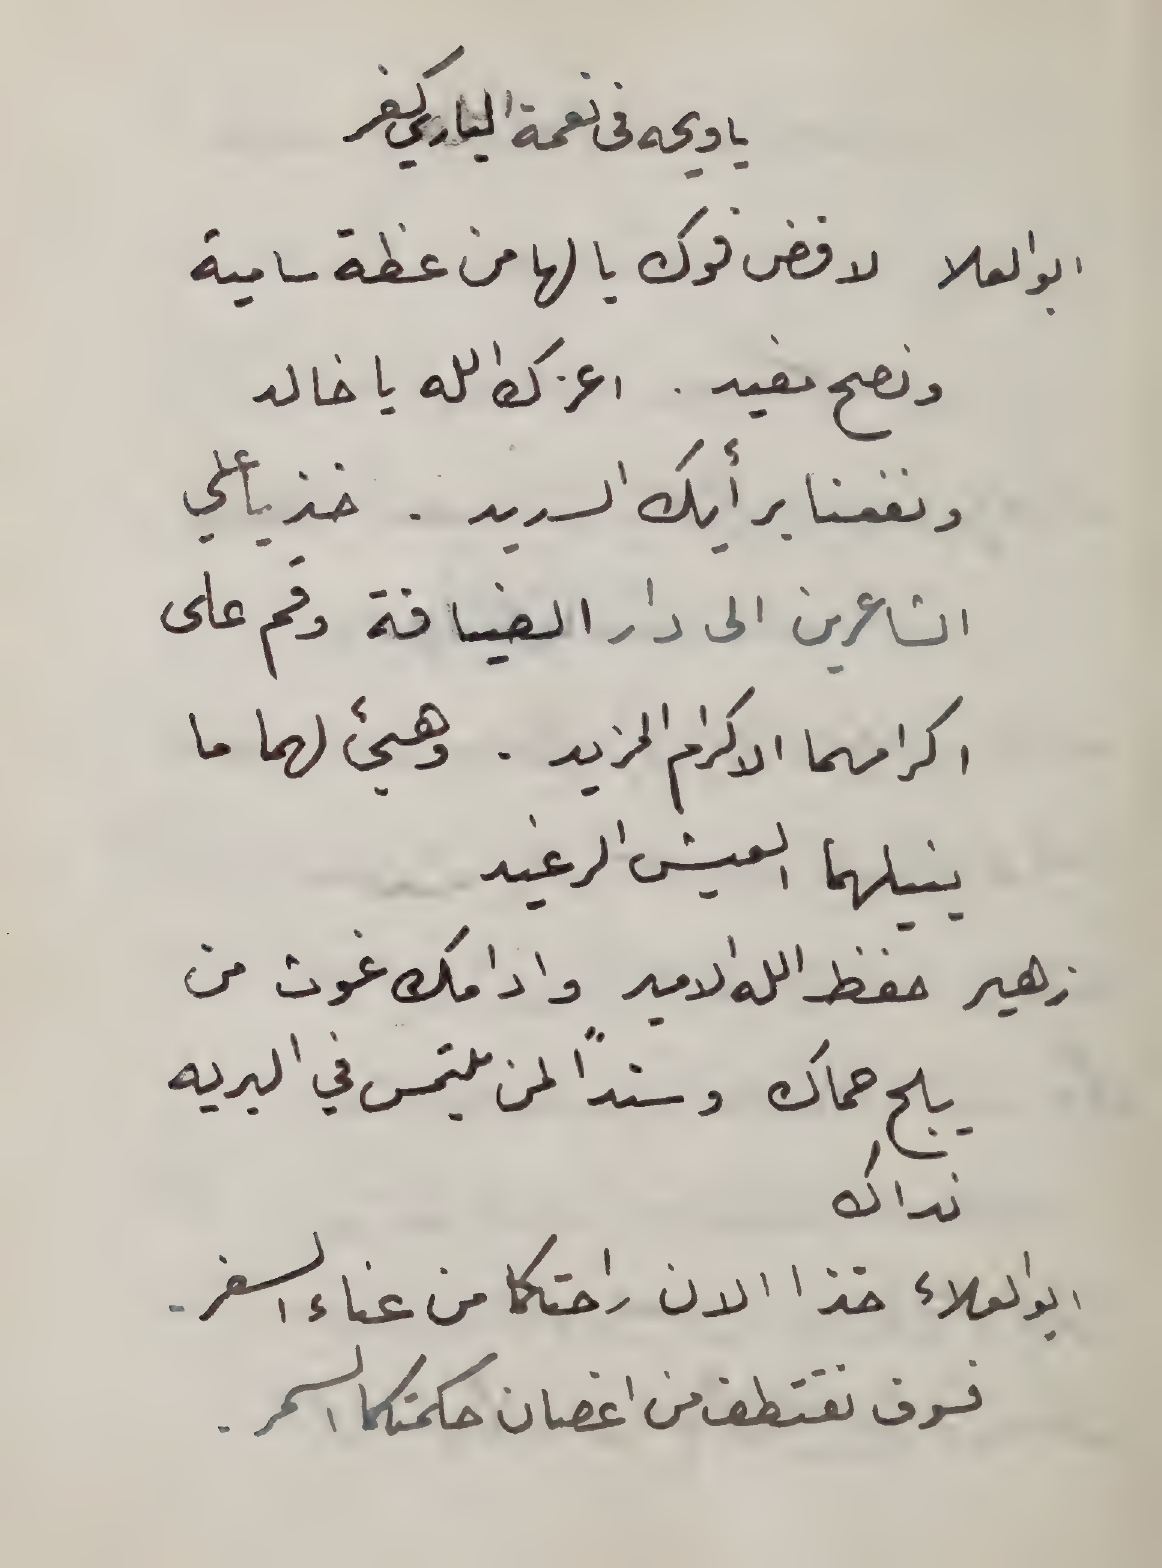 ياويحه فى نعمة الباري كفر
ابو العلا لا فض فوك يا لها من عظة سامية
ونصح مفيد . اعزك الله يا خالد
ونفعنا برأيك السديد . خذ يا علي
الشاعرين الى دار الضيافة وقم على
اكرامهما الاكرام المزيد . وهيئ لهما ما
ينيلهما العيش الرغيد
زهير حفظ الله الامير وادامك غوث من
يلج حماك وسنداً لمن يلتمس في البريه
نداك
ابو العلاء خذا الان راحتكما من عناء السفر .
فسوف نقتطف من اغصان حكمتكما السمر .